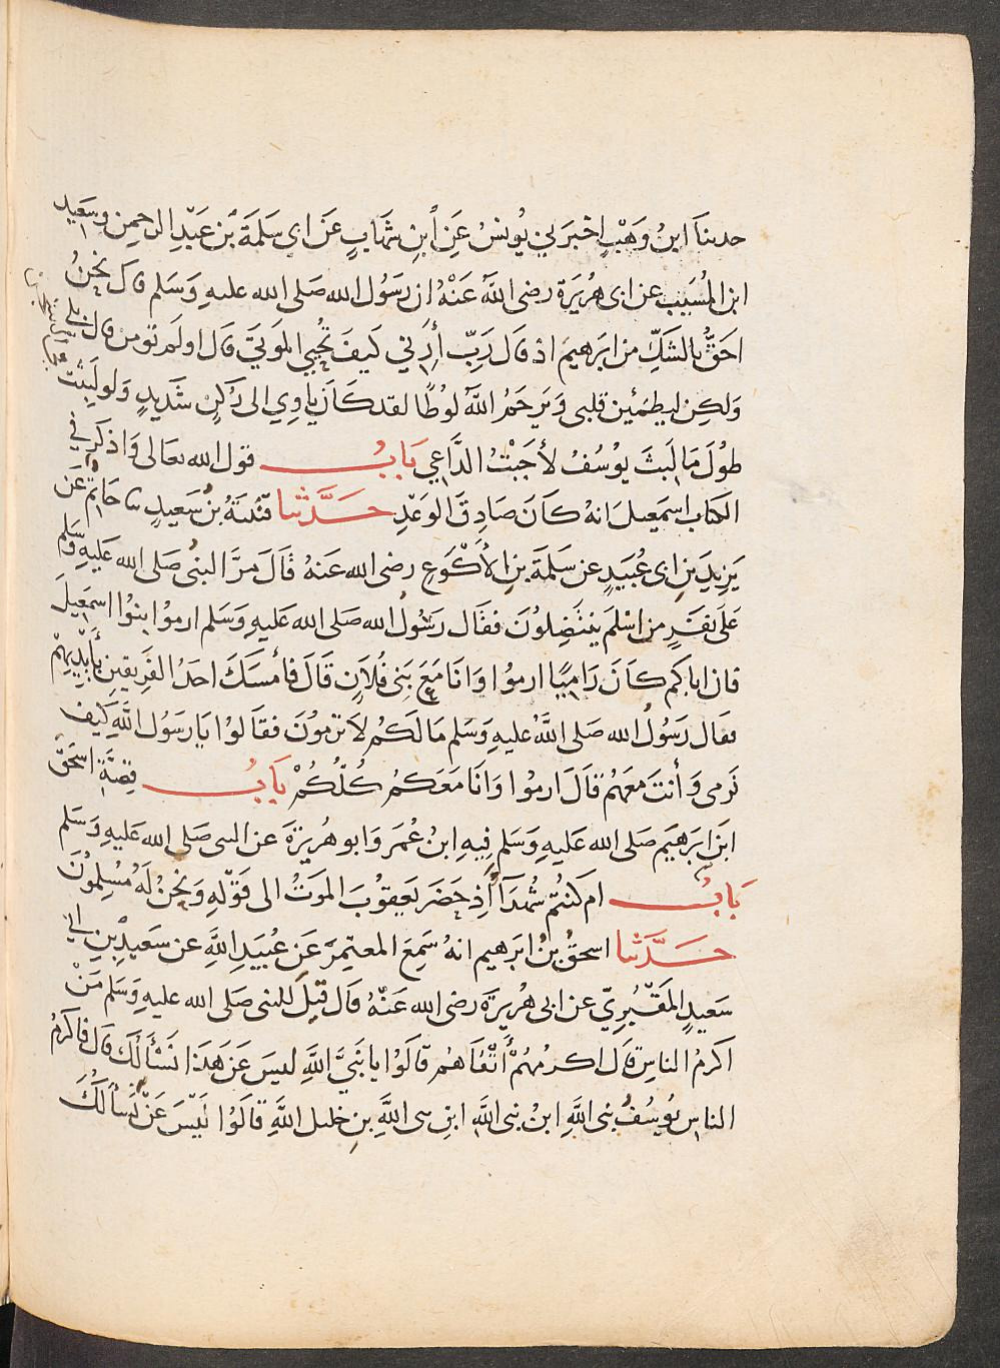 حدثنا ابنُ وَهْبٍ اخبَرَني يُونسُ عَنِ ابنِ شهَابٍ عَن ابي سَلمَةَ بْن عَبْدِ الرحمنِ وسَعِيد
ابن المُسَيب عن ابى هُرَيَرَة رضى اللهُ عَنْهُ ان رَسُول الله صَلى الله عليهِ وَسَلم قال نحنُ
احَقُّ بالشكِّ من ابرَهيمَ اذ قال رَبِّ أَرِني كَيفَ تُحيي الموتىَ قال اولم تؤمن قال بلى
وَلكِن ليطمَئِن قلبى وَيَرحَمُ اللهُ لوُطًا لقد كاَنَ ياوِي الى رُكنٍ شَديدٍ وَلو لَبِثْت
طوُلَ مَا لبثَ يوُسُفُ لأجَبْتُ الدَّاعِي بَابُ قول الله تعالى وَاذكر في
الكتاب اسمَعيلَ انهُ كانَ صَادِقَ الوَعْدِ حَدَّثنا قتَيبَةُ بنُ سَعيدٍ ثنا حَاتمٌ عَن
يَزيدَ بنِ ابى عُبَيدٍ عن سَلمَةَ بنِ الأكْوَعِ رضى الله عَنهُ قالَ مَرَّ النبىُ صَلى الله عَليهِ وَسَلم
عَلى نفَرٍ من اسْلمَ ينتَضِلوُنَ فقال رسُولُ الله صَلى الله عَليهِ وَسَلم ارموُا بنوُا اسمَعِيلَ
فان اباكم كاَنَ رَامِيًا ارموُا وَانا مَعَ بَنِى فُلَانٍ قالَ فأمْسَكَ احدُ الفَرِيقينِ بأيدِيهِمْ
فقال رَسُولُ الله صَلى اللهُ عليهِ وَسَلم مَا لكُمْ لاَ ترموُنَ فقالوُا يَا رَسُول اللهِ كيف
نَرمى وَأنتَ مَعَهُم قالَ ارموُا وَانا مَعَكمُ كُلّكُمْ بَابُ قِصّةِ اسحَقَ
ابنِ ابرَهيَم صَلى الله عَليهِ وَسَلم فِيهِ ابنُ عُمَر وَابو هُرَيرَةَ عن النبى صَلى الله عَليهِ وَسَلم
بَابُ ام كنتُمْ شُهدَآءَ إذ حَضَرَ يَعقوُبَ الموَتُ الى قوَلهِ وَنحنُ لهُ مُسْلِموُنَ
حَدَّثنا اسحقُ بنُ ابرَهيم انهُ سَمِعَ المعتمِرَ عَن عُبَيدِ اللهِ عن سَعيدِ بنِ ابي
سَعيدٍ المَقبُرِيّ عن ابى هُرَيرَةَ رضى الله عَنهُ قال قيلَ للنبى صَلى الله عليهِ وَسَلم مَنْ
اكرمُ الناسِ قال اكرمُهُمْ أتْقاهُم قالوُا يا نَبيَّ اللهِ ليسَ عَن هَذا نَسْألُكَ قال فاكرَمُ
الناسِ يُوسُفُ نبى اللهِ ابنُ نبى اللهِ ابنِ نبى اللهِ بنِ خليل اللهِ قالوُا ليْسَ عَنْ نَسألُكَ